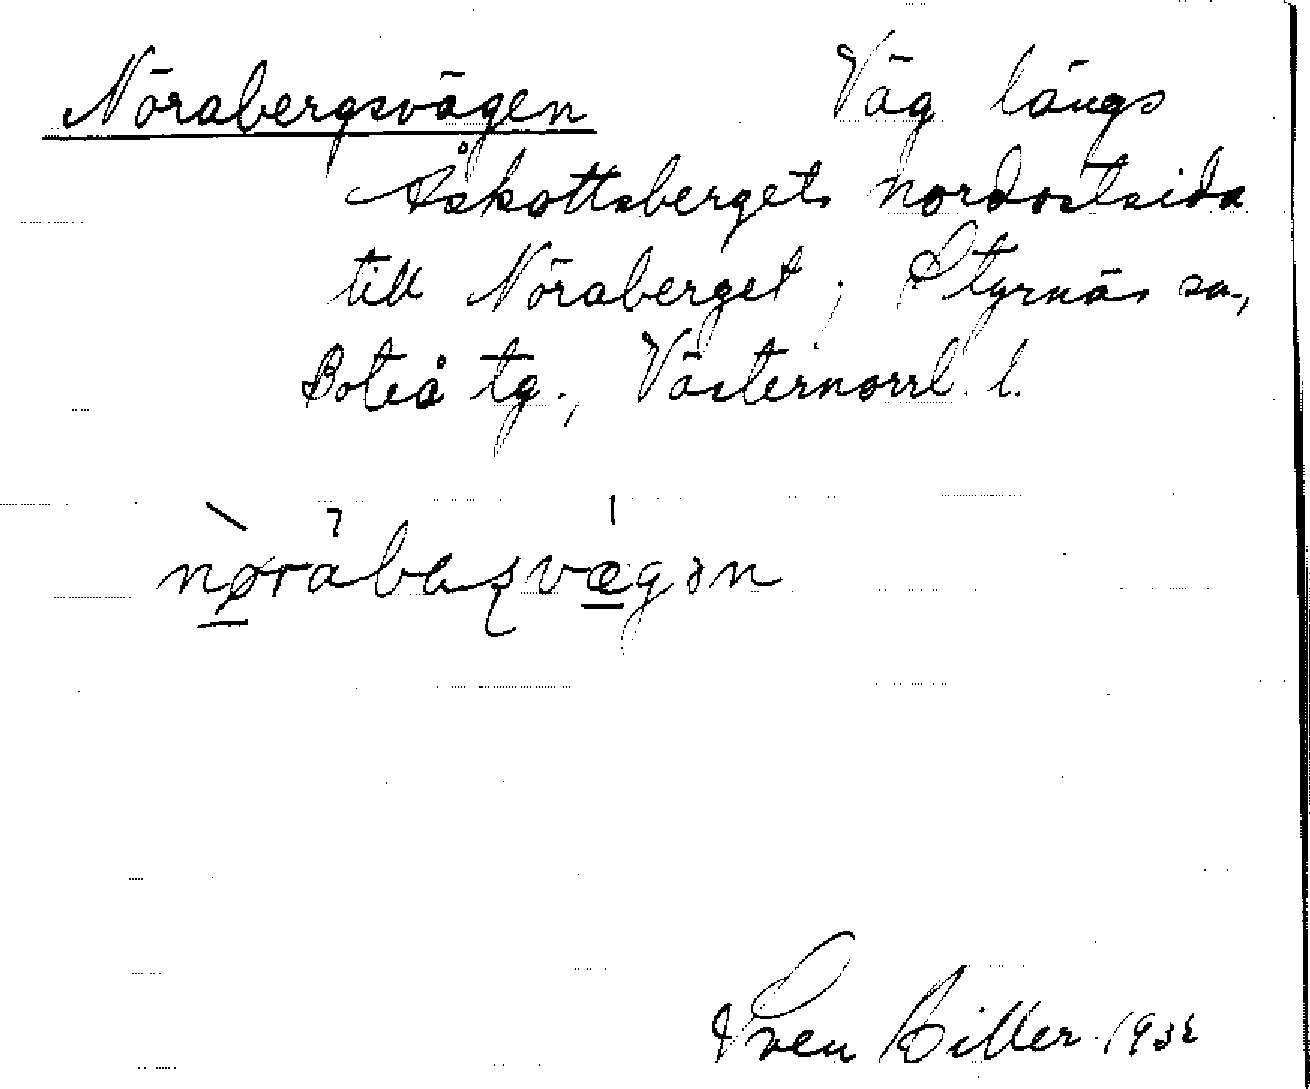 Nörabergsvägen Väg längs
Åskottsbergets nordostsida
till Nöraberget, Styrnäs sn,
Boteå tg., Västernorrl. l.
Sven Biller 1932